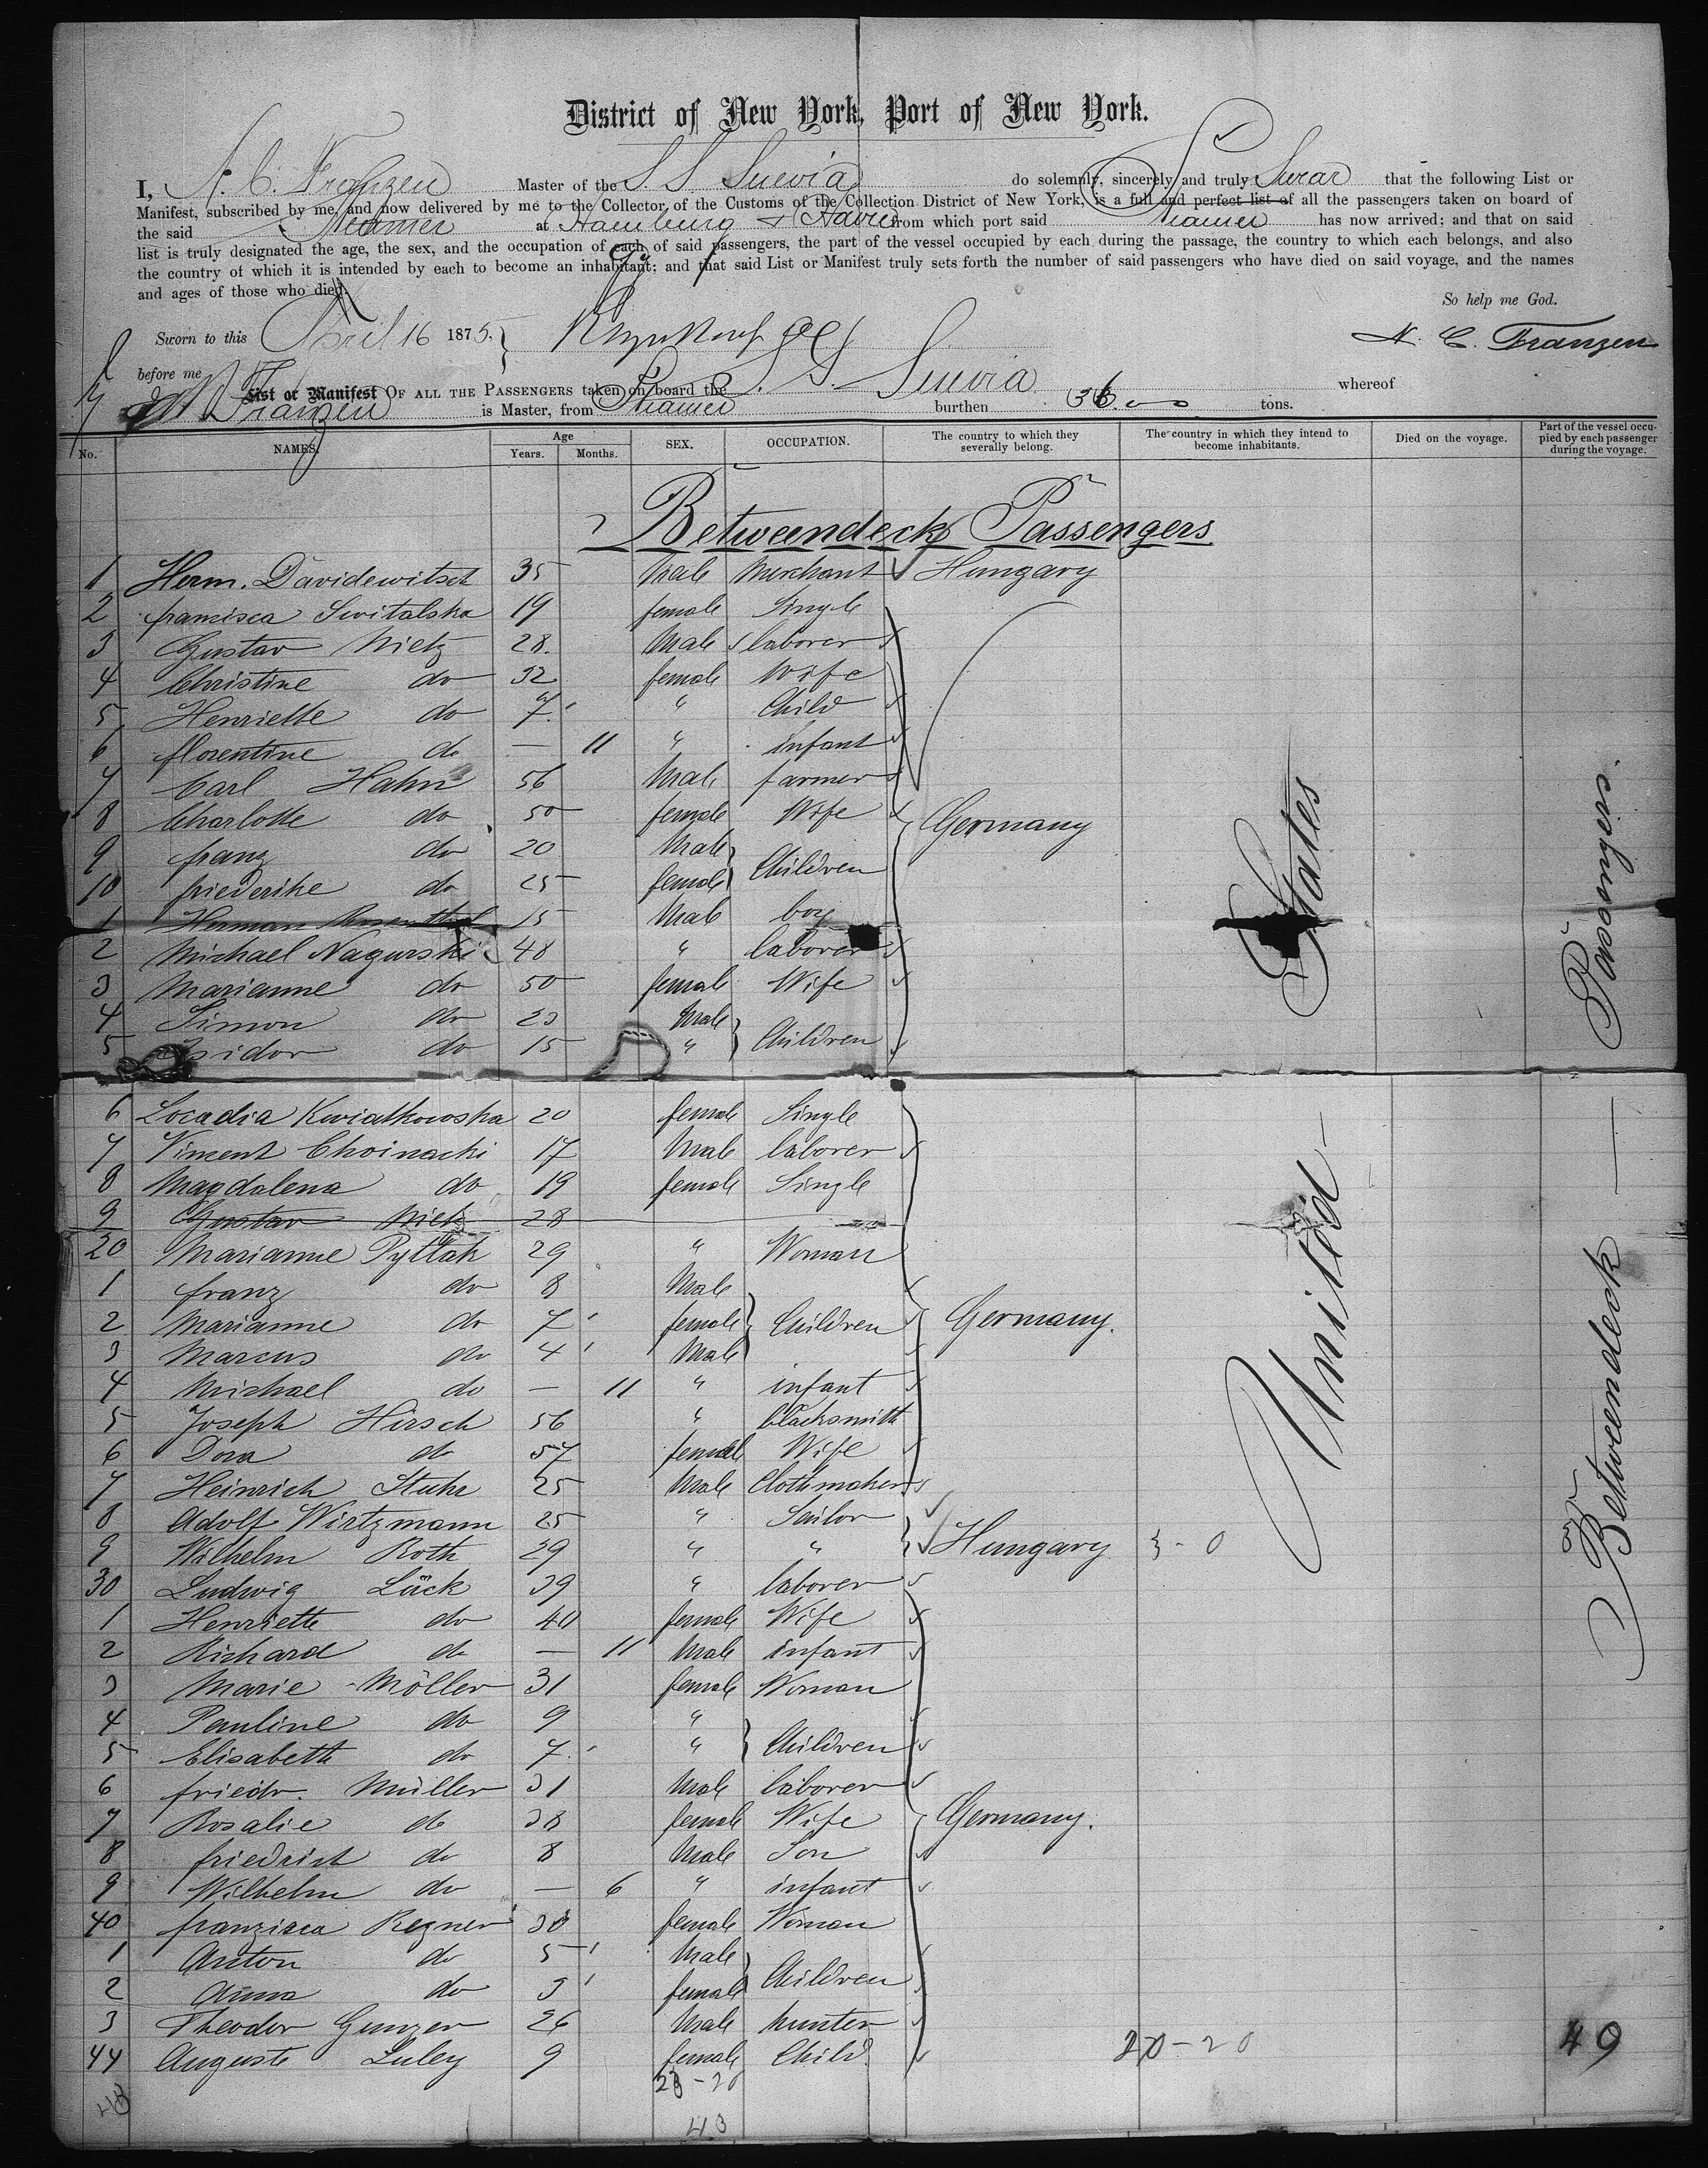 District of New York, Port of New York.
I, N. C. Franzen Master of the S. S. Suevia do solemnly, sincerely and truly Swear that the following List or
Manifest, subscribed by me, and now delivered by me to the Collector of the Customs of the Collection District of New York, is a full and perfect list of all the passengers taken on board of
the said Steamer at Hamburg & Havre from which port said Steamer has now arrived; and that on said
list is truly designated the age, the sex, and the occupation of each of said passengers, the part of the vessel occupied by each during the passage, the country to which each belongs, and also
the country of which it is intended by each to become an inhabitant; and that said List or Manifest truly sets forth the number of said passengers who have died on said voyage, and the names
and ages of those who died.
So help me God.
Sworn to this April 16 1875
N. C. Franzen
before me
List or Manifest OF ALL THE PASSENGERS taken on board the S. S. Suevia whereof
Franzen is Master, from burthen tons.
No. NAMES. Age Years. Months. SEX. OCCUPATION. The country to which they severally belong. The country in which they intend to become inhabitants. Died on the voyage. Part of the vessel occupied by each passenger during the voyage.
Betweendeck Passengers
1 Herm. Davidewitsch 35 Male Merchant Hungary
2 francisca Switalska 19 female Single
3 Gustav Nietz 28. Male laborer
4 Christine do 32 female Wife
5 Henriette do 7 " Child
6 florentine do — 11 " infant
7 Carl Hahn 56 Male farmer
8 Charlotte do 50 female Wife Germany
9 franz do 20 Male Children
10 friederike do 25 female
1 Herman Rosenthal 15 Male boy
2 Michael Nagurski 48 " laborer
3 Marianne do 50 female Wife
4 Simon do 23 Male Children
5 Isidor do 15 "
6 Locadia Kwiatkowska 20 female Single
7 Vincent Choinacki 17 Male laborer
8 Magdalena do 19 female Single
9 Gustav Nietz 28
20 Marianne Pyttak 29 " Woman
1 franz do 8 Male
2 Marianne do 7 female Children Germany.
3 Marcus do 4 Male
4 Michael do — 11 " infant
5 Joseph Hirsch 56 " blacksmith
6 Dora do 57 female Wife
7 Heinrich Stuhr 25 Male Clothmaker
8 Adolf Wirtzmann 25 " Sailor
9 Wilhelm Roth 29 " " Hungary 3 - 0
30 Ludwig Lück 39 " laborer
1 Henriette do 40 female Wife
2 Richard do — 11 Male infant
3 Marie Möller 31 female Woman
4 Pauline do 9 " Children
5 Elisabeth do 7 "
6 friedr. Müller 31 Male laborer
7 Rosalie do 38 female Wife Germany.
8 friedrich do 8 Male Son
9 Wilhelm do — 6 " infant
40 franzisca Regner 30 female Woman
1 Anton do 5 Male Children
2 Anna do 3 female
3 Theodor Gunzer 26 Male hunter
44 Auguste Luley 9 female Child
United States
Betweendeck Passengers.
20 - 20
49
23 - 20
43
43